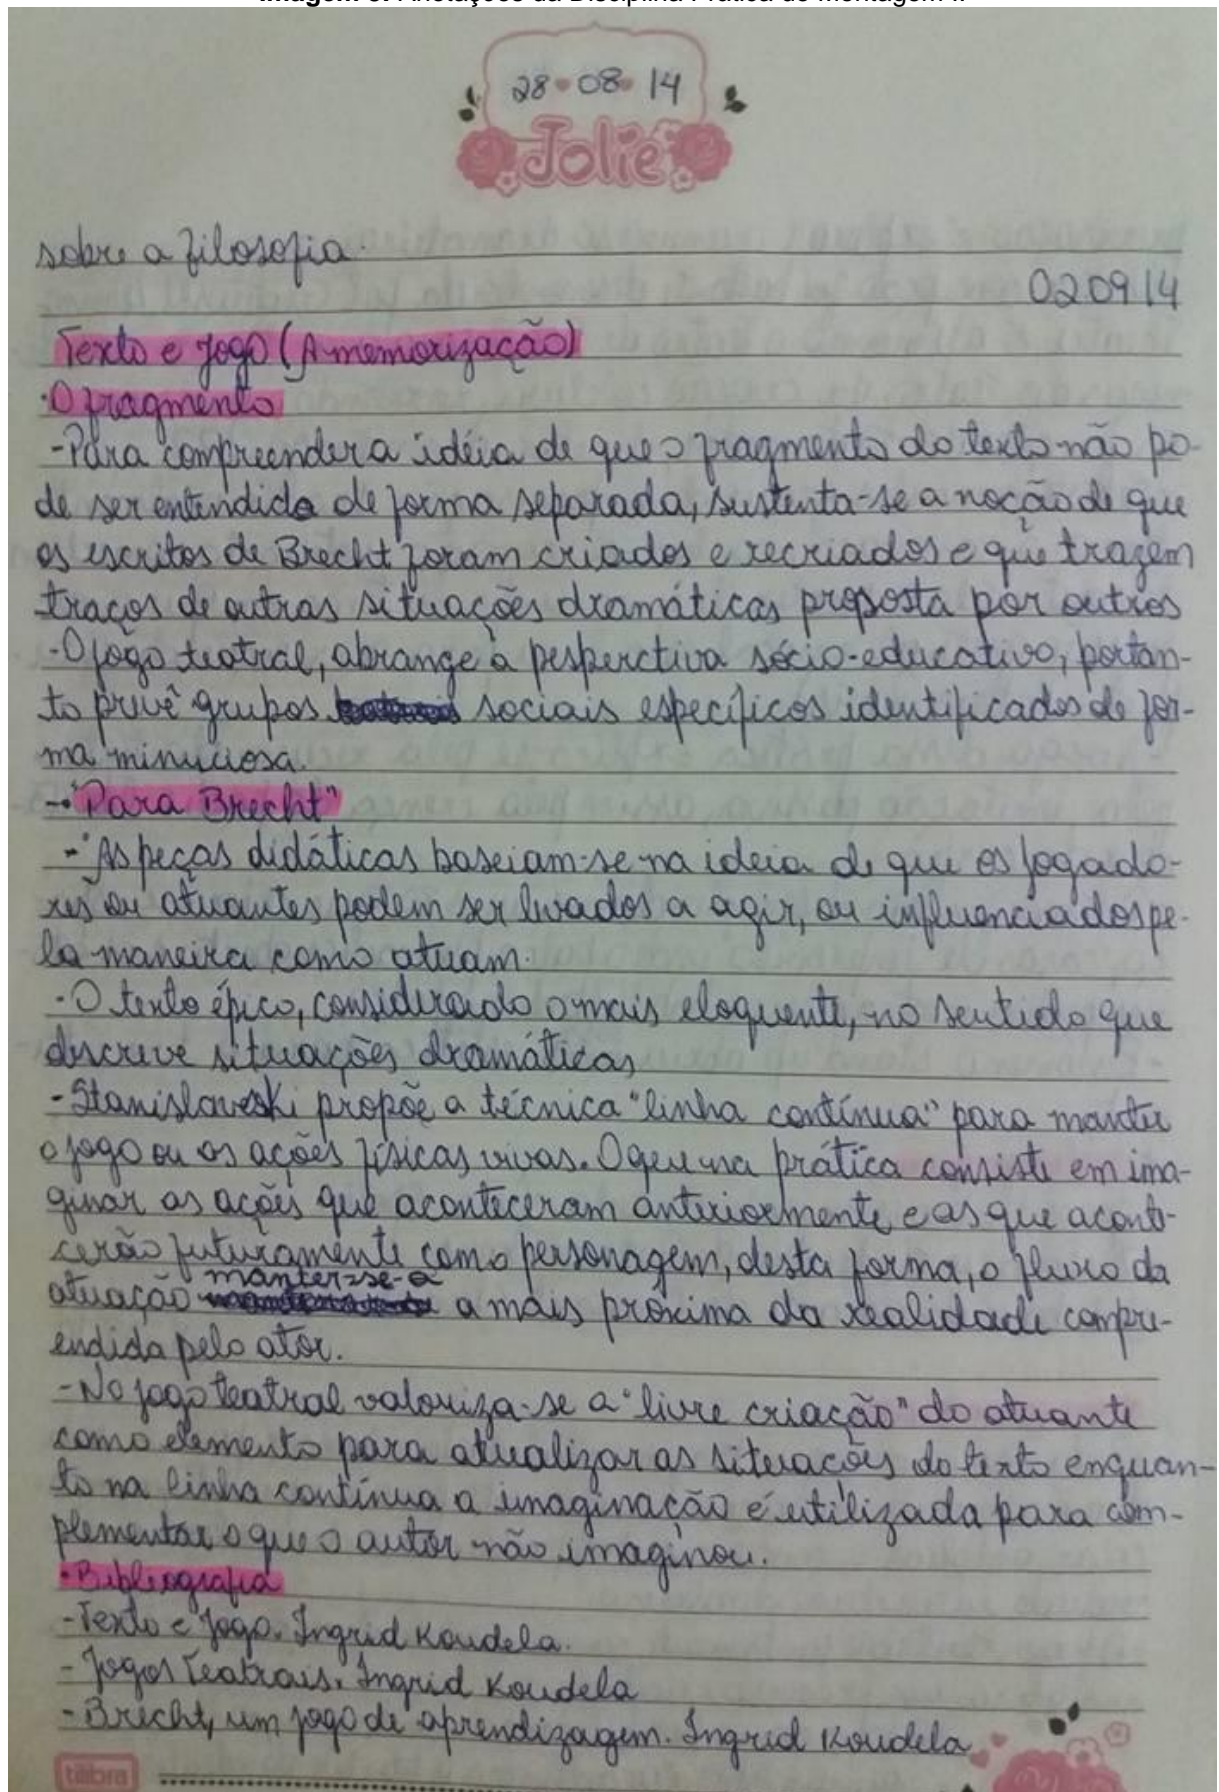 28 08 14
Jolie
sobre a filosofia.
020914
Texto e jogo (A memorização)
·O fragmento
-Para compreender a idéia de que o fragmento do texto não po-
de ser entendido de forma separada, sustenta-se a noção de que
os escritos de Brecht foram criados e recriados e que trazem
traços de outras situações dramáticas proposta por outros
-O jogo teatral, abrange a pesperctiva sócio-educativo, portan-
to prevê grupos sociais específicos identificados de for-
ma minuciosa.
-"Para Brecht"
-"As peças didáticas baseiam-se na ideia de que os jogado-
res ou atuantes podem ser levados a agir, ou influenciados pe-
la maneira como atuam.
-O texto épico, considerado o mais eloquente, no sentido que
descreve situações dramáticas
-Stanislaveski propõe a técnica "linha contínua" para manter
o jogo ou as ações físicas vivas. O que na prática consiste em ima-
ginar as ações que aconteceram anteriormente e as que aconte-
cerão futuramente como personagem, desta forma, o fluxo da
manter-se-a
atuação a mais próxima da realidade compre-
endida pelo ator.
-No jogo teatral valoriza-se a "livre criação" do atuante
como elemento para atualizar as situações do texto enquan-
to na linha contínua a imaginação é utilizada para com-
plementar o que o autor não imaginou.
·Bibliografia
-Texto e jogo. Ingrid Koudela.
-Jogos Teatrais. Ingrid Koudela
-Brecht, um jogo de aprendizagem. Ingrid Koudela
tilibra